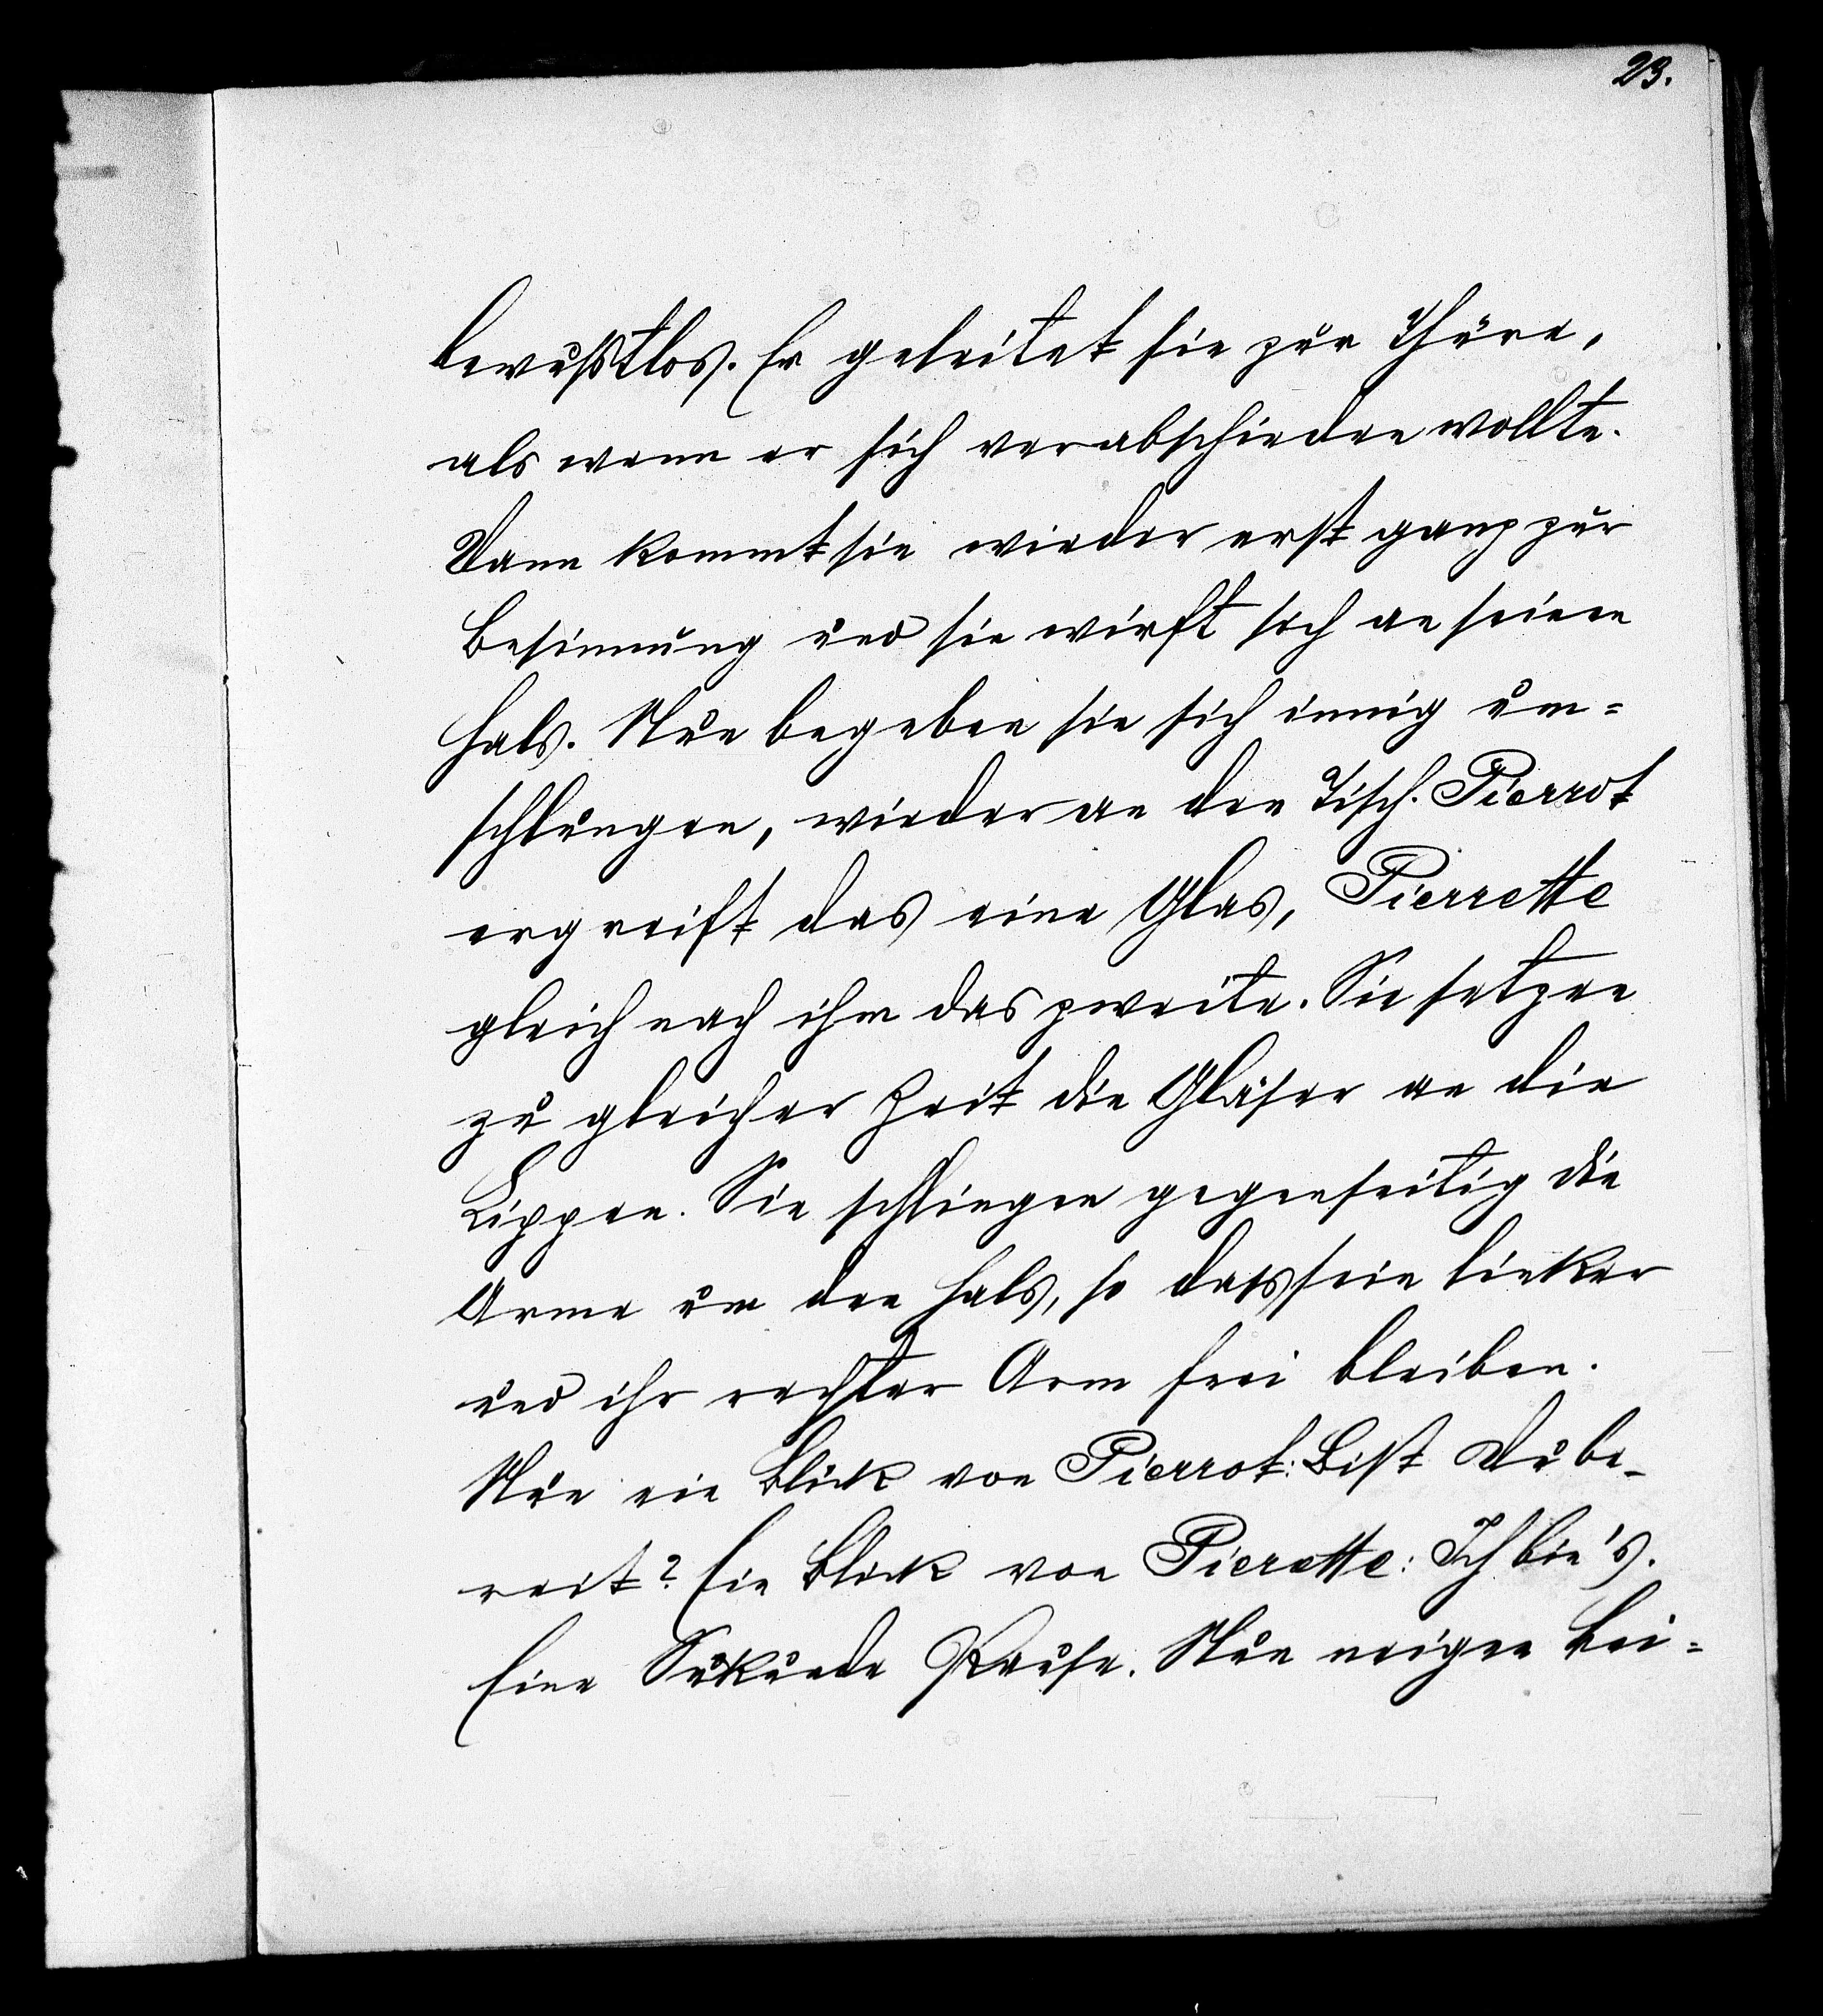 23.
bewußtlos. Er geleitet sie zur Thüre,
als wenn er sich verabschieden wollte.
Dann kommt sie wieder erst ganz zur
Besinnung und sie wirft sich an seinen
Hals. Nun begeben sie sich innig um=
schlungen, wieder an den Tisch. Pierrot
ergreift das eine Glas, Pierrette
gleich nach ihm das zweite. Sie setzen
zu gleicher Zeit die Gläser an die
Lippen. Sie schlingen gegenseitig die
Arme um den Hals, so dass sein linker
und ihr rechter Arm frei bleiben.
Nun ein Blick von Pierrot: Bist Du be-
reit? Ein Blick von Pierette: Ich bin's.
Eine Sekunde Pause. Nun neigen bei=